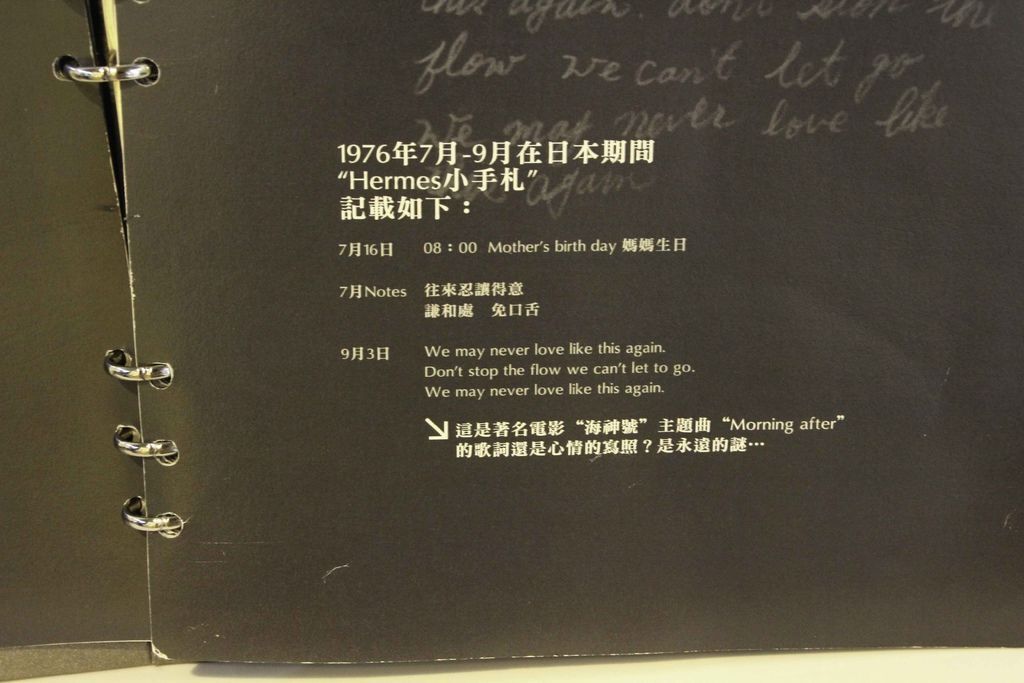 this again. don't stop the
flow we can't let go
We may never love like
this again
1976年7月-9月在日本期間
“Hermes小手札”
記載如下：
7月16日 08：00 Mother's birth day 媽媽生日
7月Notes 往來忍讓得意
謙和處 免口舌
9月3日 We may never love like this again.
Don't stop the flow we can't let to go.
We may never love like this again.
這是著名電影“海神號”主題曲“Morning after”
的歌詞還是心情的寫照？是永遠的謎…